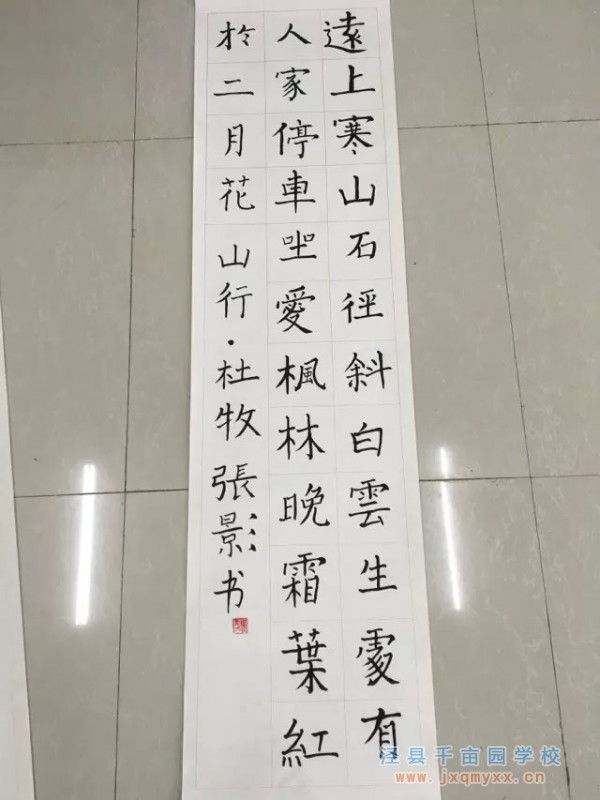 遠上寒山石徑斜白雲生處有
人家停車坐愛楓林晚霜葉紅
於二月花 山行·杜牧 張影书
泾县千亩园学校
www.jxqmyxx.cn